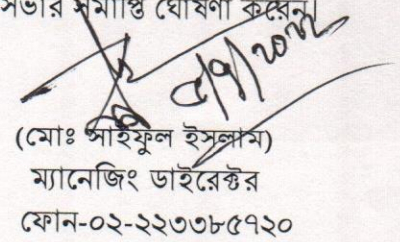 সভার সমাপ্তি ঘোষণা করেন।
(মোঃ সাইফুল ইসলাম)
ম্যানেজিং ডাইরেক্টর
ফোন-০২-২২৩৩৮৫৭২০